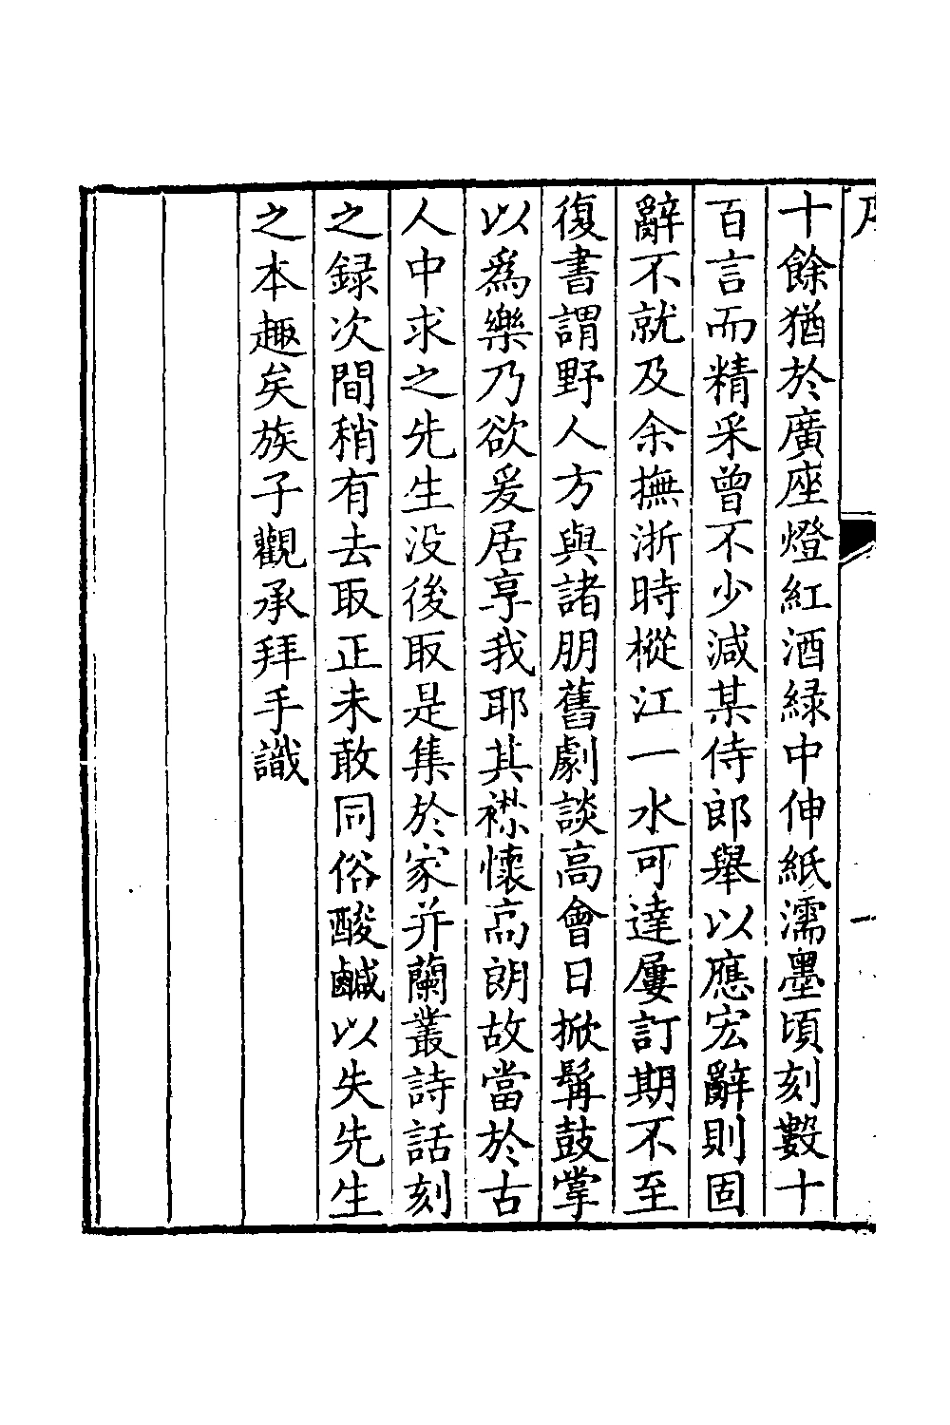 十餘猶於廣座燈紅酒緑中伸紙濡墨頃刻數十
百言而精采曾不少減某侍郎舉以應宏辭則固
辭不就及余撫浙時樅江一水可達屢訂期不至
復書謂野人方與諸朋舊劇談高會日掀髯鼓掌
以爲樂乃欲爰居享我耶其襟懷高朗故當於古
人中求之先生没後取是集於家并蘭叢詩話刻
之録次間稍有去取正未敢同俗酸鹹以失先生
之本趣矣族子觀承拜手識